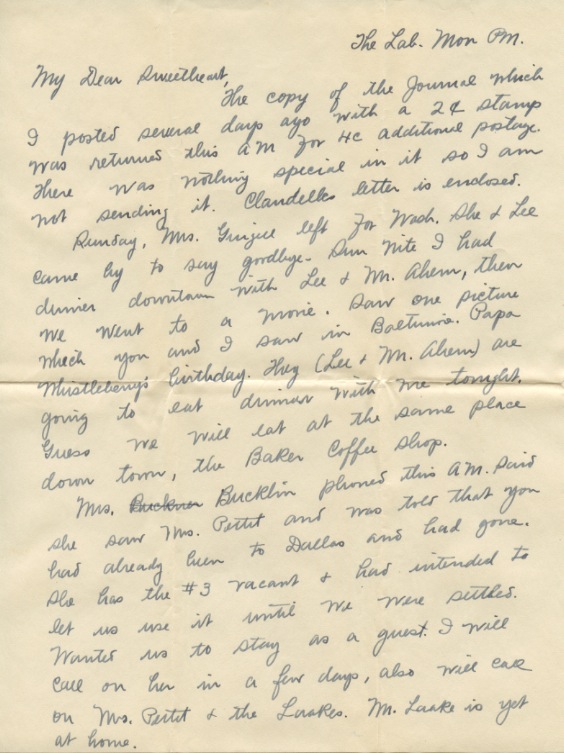 The Lab. Mon PM.
My Dear Sweetheart,
The copy of the Journal which
I posted several days ago with a 2¢ stamp
was returned this AM for 4c additional postage.
There was nothing special in it so I am
not sending it. Clandelles letter is enclosed.
Sunday, Mrs. left for Wash. She & Lee
came by to say goodbye. Sun Nite I had
dinner downtown with Lee & Mr. Ahern, then
we went to a movie. Saw one picture
which you and I saw in Baltimore. Papa
Whistleberry's birthday. They (Lee & Mr. Ahern) are
going to eat dinner with me tonight.
Guess we will eat at the same place
down town, the Baker Coffee Shop.
Mrs. Buckner Bucklin phoned this AM. Said
she saw Mrs. Pettit and was told that you
had already been to Dallas and had gone.
She has the #3 vacant & had intended to
let us use it until we were settled.
Wanted us to stay as a guest. I will
call on her in a few days, also will call
on Mrs. Pettit & the Laakes. Mr. Laake is yet
at home.